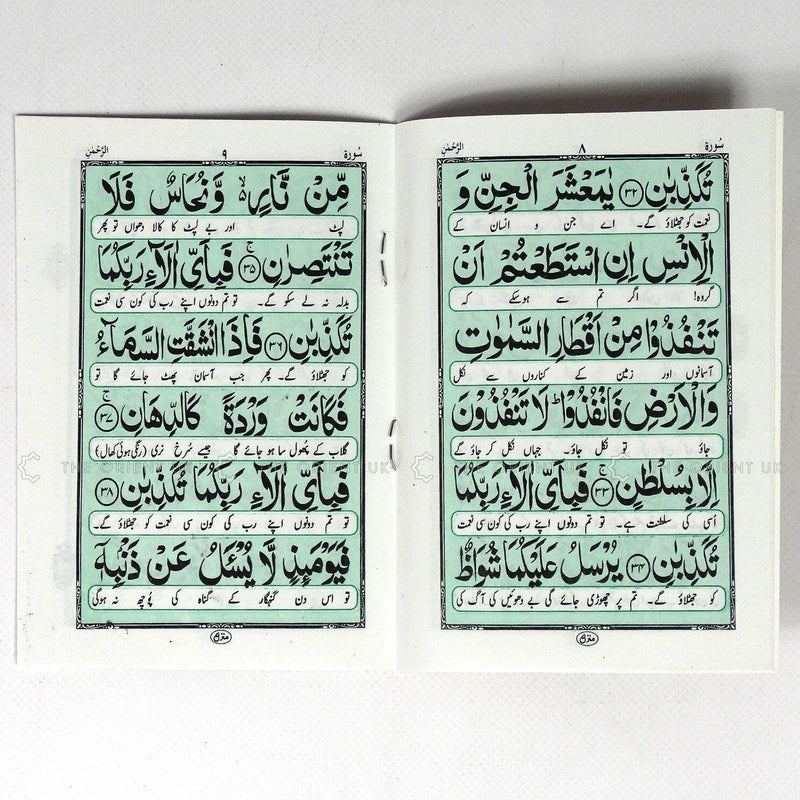 سُورة ٨ الرَّحْمٰن
تُكَذِّبٰنِ ﴿۳۲﴾ يٰمَعْشَرَ الْجِنِّ وَ
نعمت کو جھٹلاؤ گے۔ اے جن و انسان کے
الْاِنْسِ اِنِ اسْتَطَعْتُمْ اَنْ
گروہ! اگر تم سے ہوسکے کہ
تَنْفُذُوْا مِنْ اَقْطَارِ السَّمٰوٰتِ
آسمانوں اور زمین کے کناروں سے نکل
وَالْاَرْضِ فَانْفُذُوْا ؕ لَا تَنْفُذُوْنَ
جاؤ تو نکل جاؤ۔ جہاں نکل کر جاؤ گے
اِلَّا بِسُلْطٰنٍ ﴿۳۳﴾ ۚ فَبِاَيِّ اٰلَآءِ رَبِّكُمَا
اُسی کی سلطنت ہے۔ تو تم دونوں اپنے رب کی کون سی نعمت
تُكَذِّبٰنِ ﴿۳۴﴾ يُرْسَلُ عَلَيْكُمَا شُوَاظٌ
کو جھٹلاؤ گے۔ تم پر چھوڑی جائے گی بے دھوئیں کی آگ کی
منزل ۷
سُورة ٩ الرَّحْمٰن
مِّنْ نَّارٍ ۙ وَّ نُحَاسٌ فَلَا
لپٹ اور بے لپٹ کا کالا دھواں تو پھر
تَنْتَصِرٰنِ ﴿۳۵﴾ ۚ فَبِاَيِّ اٰلَآءِ رَبِّكُمَا
بدلہ نہ لے سکو گے۔ تو تم دونوں اپنے رب کی کون سی نعمت
تُكَذِّبٰنِ ﴿۳۶﴾ فَاِذَا انْشَقَّتِ السَّمَآءُ
کو جھٹلاؤ گے۔ پھر جب آسمان پھٹ جائے گا تو
فَكَانَتْ وَرْدَةً كَالدِّهَانِ ﴿۳۷﴾ ۚ
گلاب کے پھول سا ہو جائے گا جیسے سُرخ نری (رنگی ہوئی کھال)
فَبِاَيِّ اٰلَآءِ رَبِّكُمَا تُكَذِّبٰنِ ﴿۳۸﴾
تو تم دونوں اپنے رب کی کون سی نعمت کو جھٹلاؤ گے۔
فَيَوْمَئِذٍ لَّا يُسْـَٔلُ عَنْ ذَنْۢبِهٖۤ
تو اس دن گنہگار کے گناہ کی پُوچھ نہ ہوگی
منزل ۷
THE ORIENT UK
THE ORIENT UK